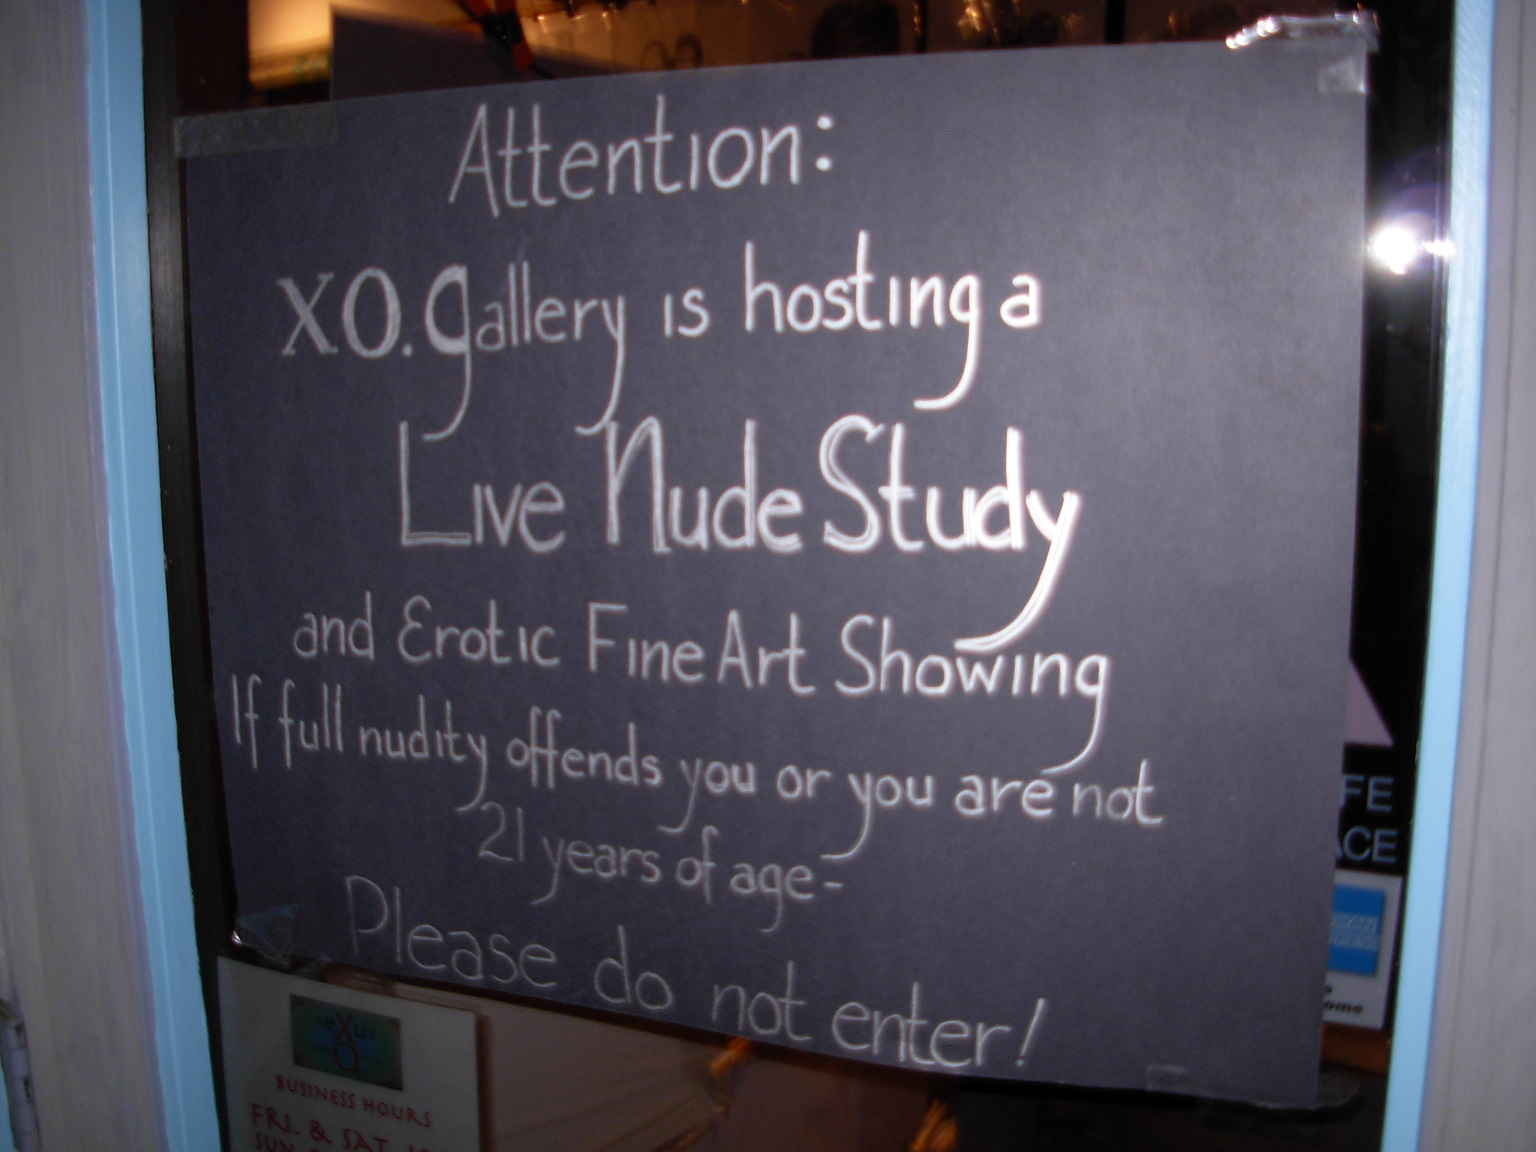 Attention:
XO.gallery is hosting a
Live Nude Study
and Erotic Fine Art Showing
If full nudity offends you or you are not
21 years of age-
Please do not enter!
FE
ACE
ome
BUSINESS HOURS
FRI. & SAT.
SUN.